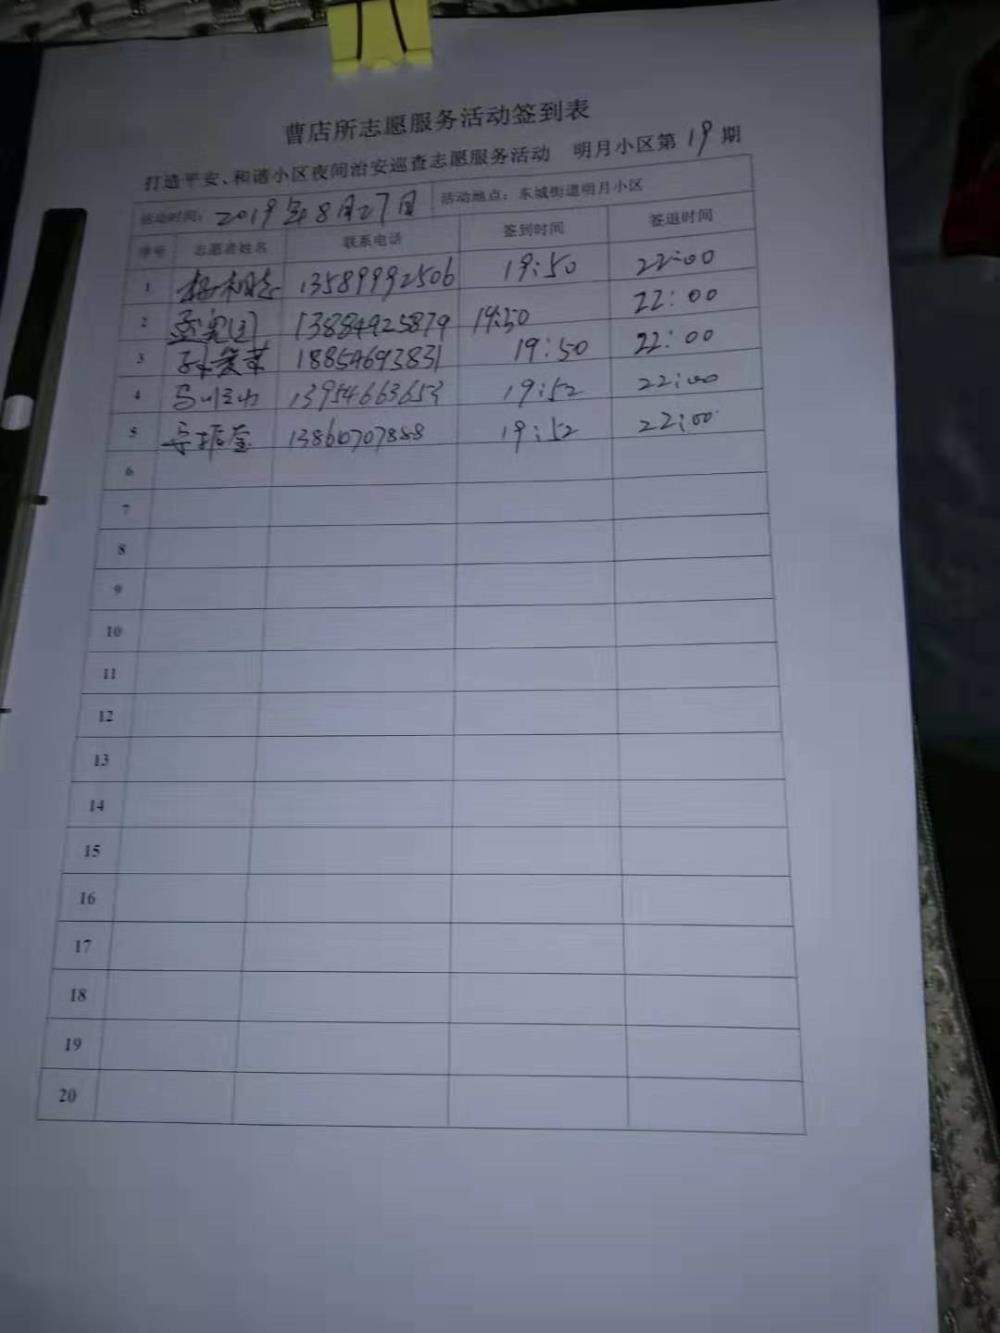 曹店所志愿服务活动签到表
打造平安、和谐小区夜间治安巡查志愿服务活动 明月小区第19期
活动时间：2019年8月27日 活动地点：东城街道明月小区
序号 志愿者姓名 联系电话 签到时间 签退时间
1 13589992506 19:50 22:00
2 13884925879 19:50 22:00
3 18854693831 19:50 22:00
4 13954663653 19:52 22:00
5 13860707888 19:52 22:00
6
7
8
9
10
11
12
13
14
15
16
17
18
19
20